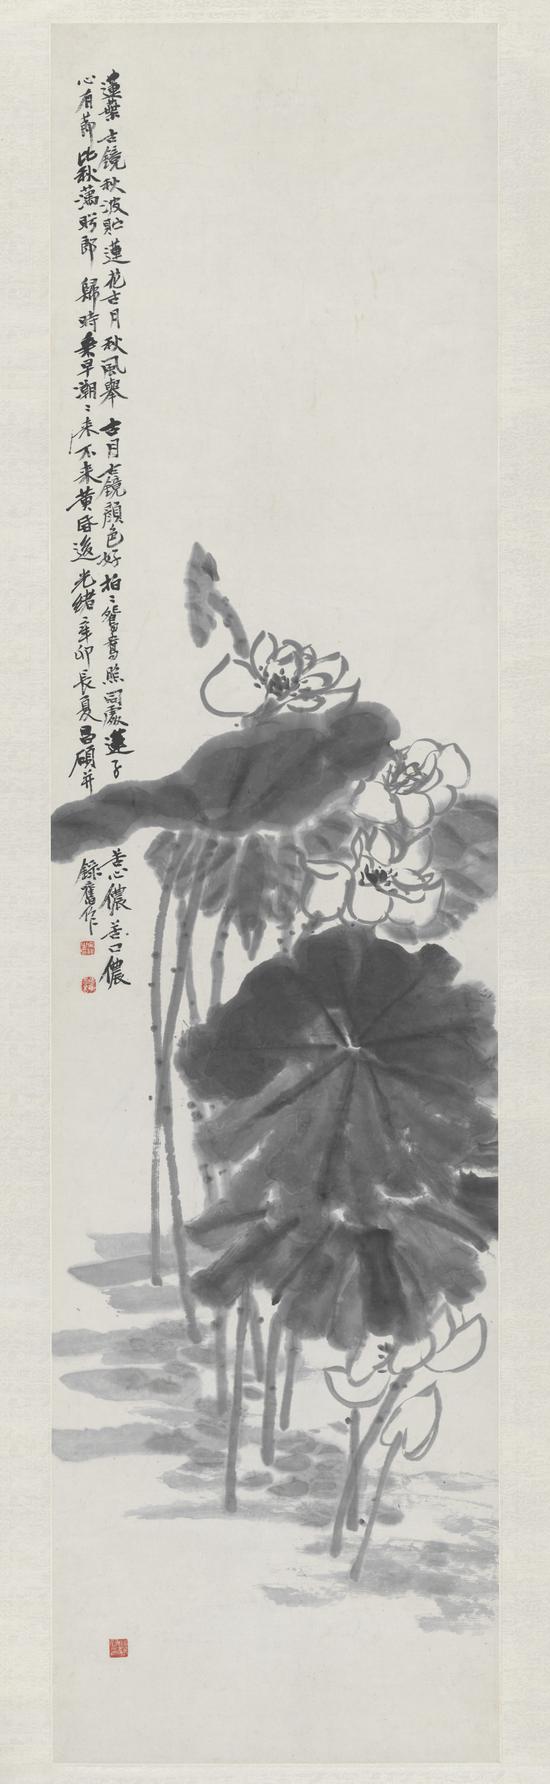 蓮葉古鏡秋波貯蓮花古月秋風舉古月古鏡顏色好拍〻鴛鴦照同處蓮子苦心儂苦口儂
心有節比秋藕盻郎歸時乘早潮〻來不來黃昏邊光緒辛卯長夏昌碩并錄舊作